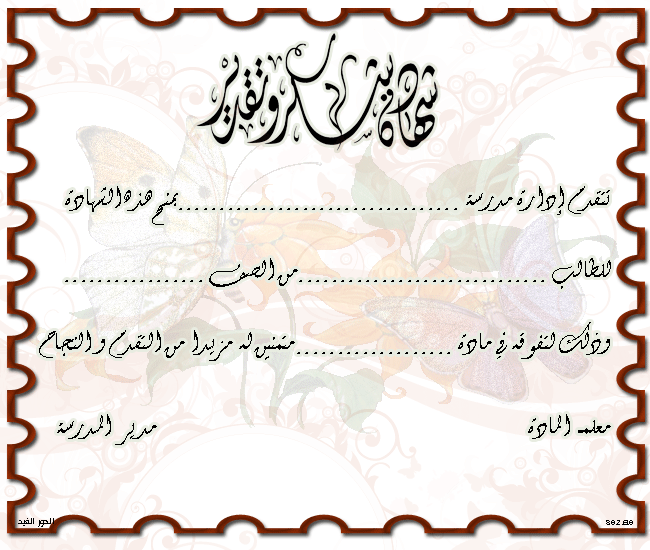 شهادة شكر وتقدير
تتقدم إدارة مدرسة ...................................بمنح هذه الشهادة
للطالب ...............................من الصف ..................
وذلك لتفوقه في مادة ....................متمنين له مزيدا من التقدم و النجاح
معلمـ المادة مدير المدرسة